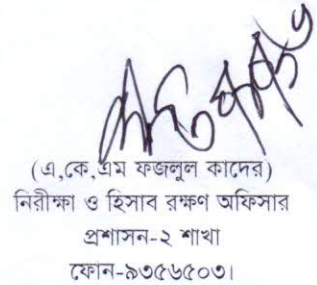 (এ,কে,এম ফজলুল কাদের)
নিরীক্ষা ও হিসাব রক্ষণ অফিসার
প্রশাসন-২ শাখা
ফোন-৯৩৫৬৫০৩।